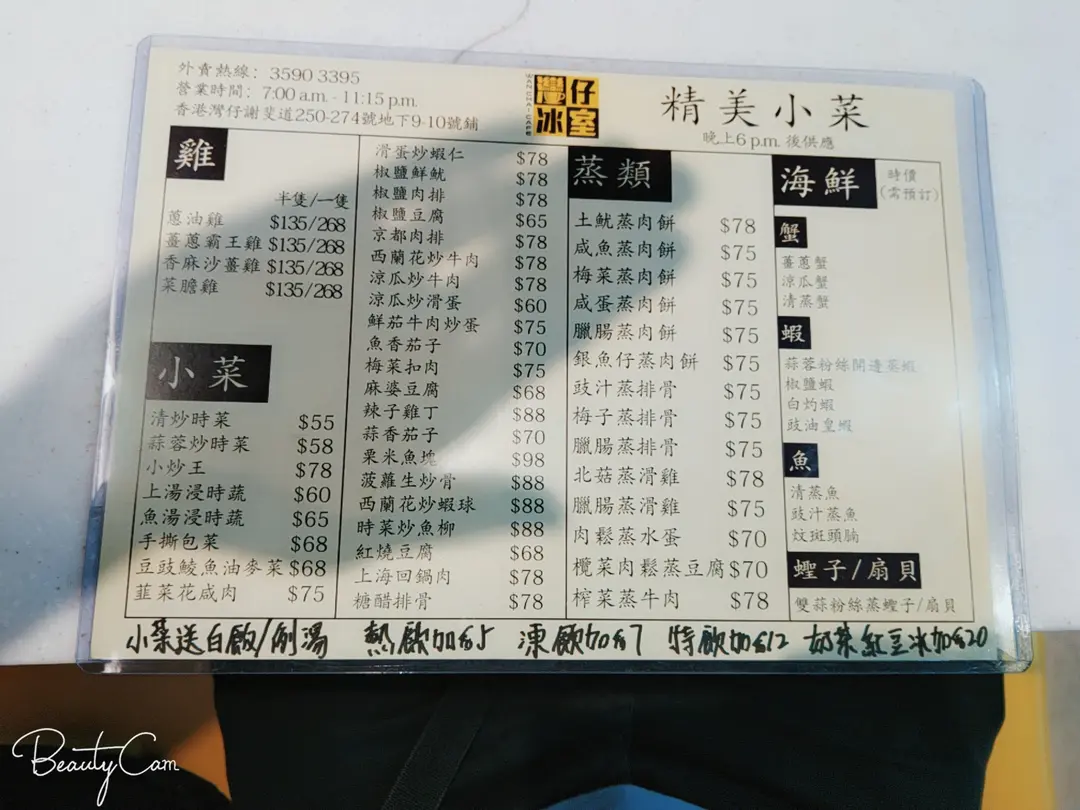 外賣熱線：3590 3395
營業時間：7:00 a.m. - 11:15 p.m.
香港灣仔謝斐道250-274號地下9-10號鋪
WAN CHAI CAFE
灣仔
冰室
精美小菜
晚上6 p.m. 後供應
雞
半隻/一隻
蔥油雞 $135/268
薑蔥霸王雞 $135/268
香麻沙薑雞 $135/268
菜膽雞 $135/268
小菜
清炒時菜 $55
蒜蓉炒時菜 $58
小炒王 $78
上湯浸時蔬 $60
魚湯浸時蔬 $65
手撕包菜 $68
豆豉鯪魚油麥菜 $68
韮菜花咸肉 $75
滑蛋炒蝦仁 $78
椒鹽鮮魷 $78
椒鹽肉排 $78
椒鹽豆腐 $65
京都肉排 $78
西蘭花炒牛肉 $78
涼瓜炒牛肉 $78
涼瓜炒滑蛋 $60
鮮茄牛肉炒蛋 $75
魚香茄子 $70
梅菜扣肉 $75
麻婆豆腐 $68
辣子雞丁 $88
蒜香茄子 $70
粟米魚塊 $98
菠蘿生炒骨 $88
西蘭花炒蝦球 $88
時菜炒魚柳 $88
紅燒豆腐 $68
上海回鍋肉 $78
糖醋排骨 $78
蒸類
土魷蒸肉餅 $78
咸魚蒸肉餅 $75
梅菜蒸肉餅 $75
咸蛋蒸肉餅 $75
臘腸蒸肉餅 $75
銀魚仔蒸肉餅 $75
豉汁蒸排骨 $75
梅子蒸排骨 $75
臘腸蒸排骨 $75
北菇蒸滑雞 $78
臘腸蒸滑雞 $75
肉鬆蒸水蛋 $70
欖菜肉鬆蒸豆腐 $70
榨菜蒸牛肉 $78
海鮮
時價
(需預訂)
蟹
薑蔥蟹
涼瓜蟹
清蒸蟹
蝦
蒜蓉粉絲開邊蒸蝦
椒鹽蝦
白灼蝦
豉油皇蝦
魚
清蒸魚
豉汁蒸魚
炆斑頭腩
蟶子/扇貝
雙蒜粉絲蒸蟶子/扇貝
小菜送白飯/例湯 熱飲加$5 凍飲加$7 特飲加$12 奶茶紅豆冰加$20
BeautyCam